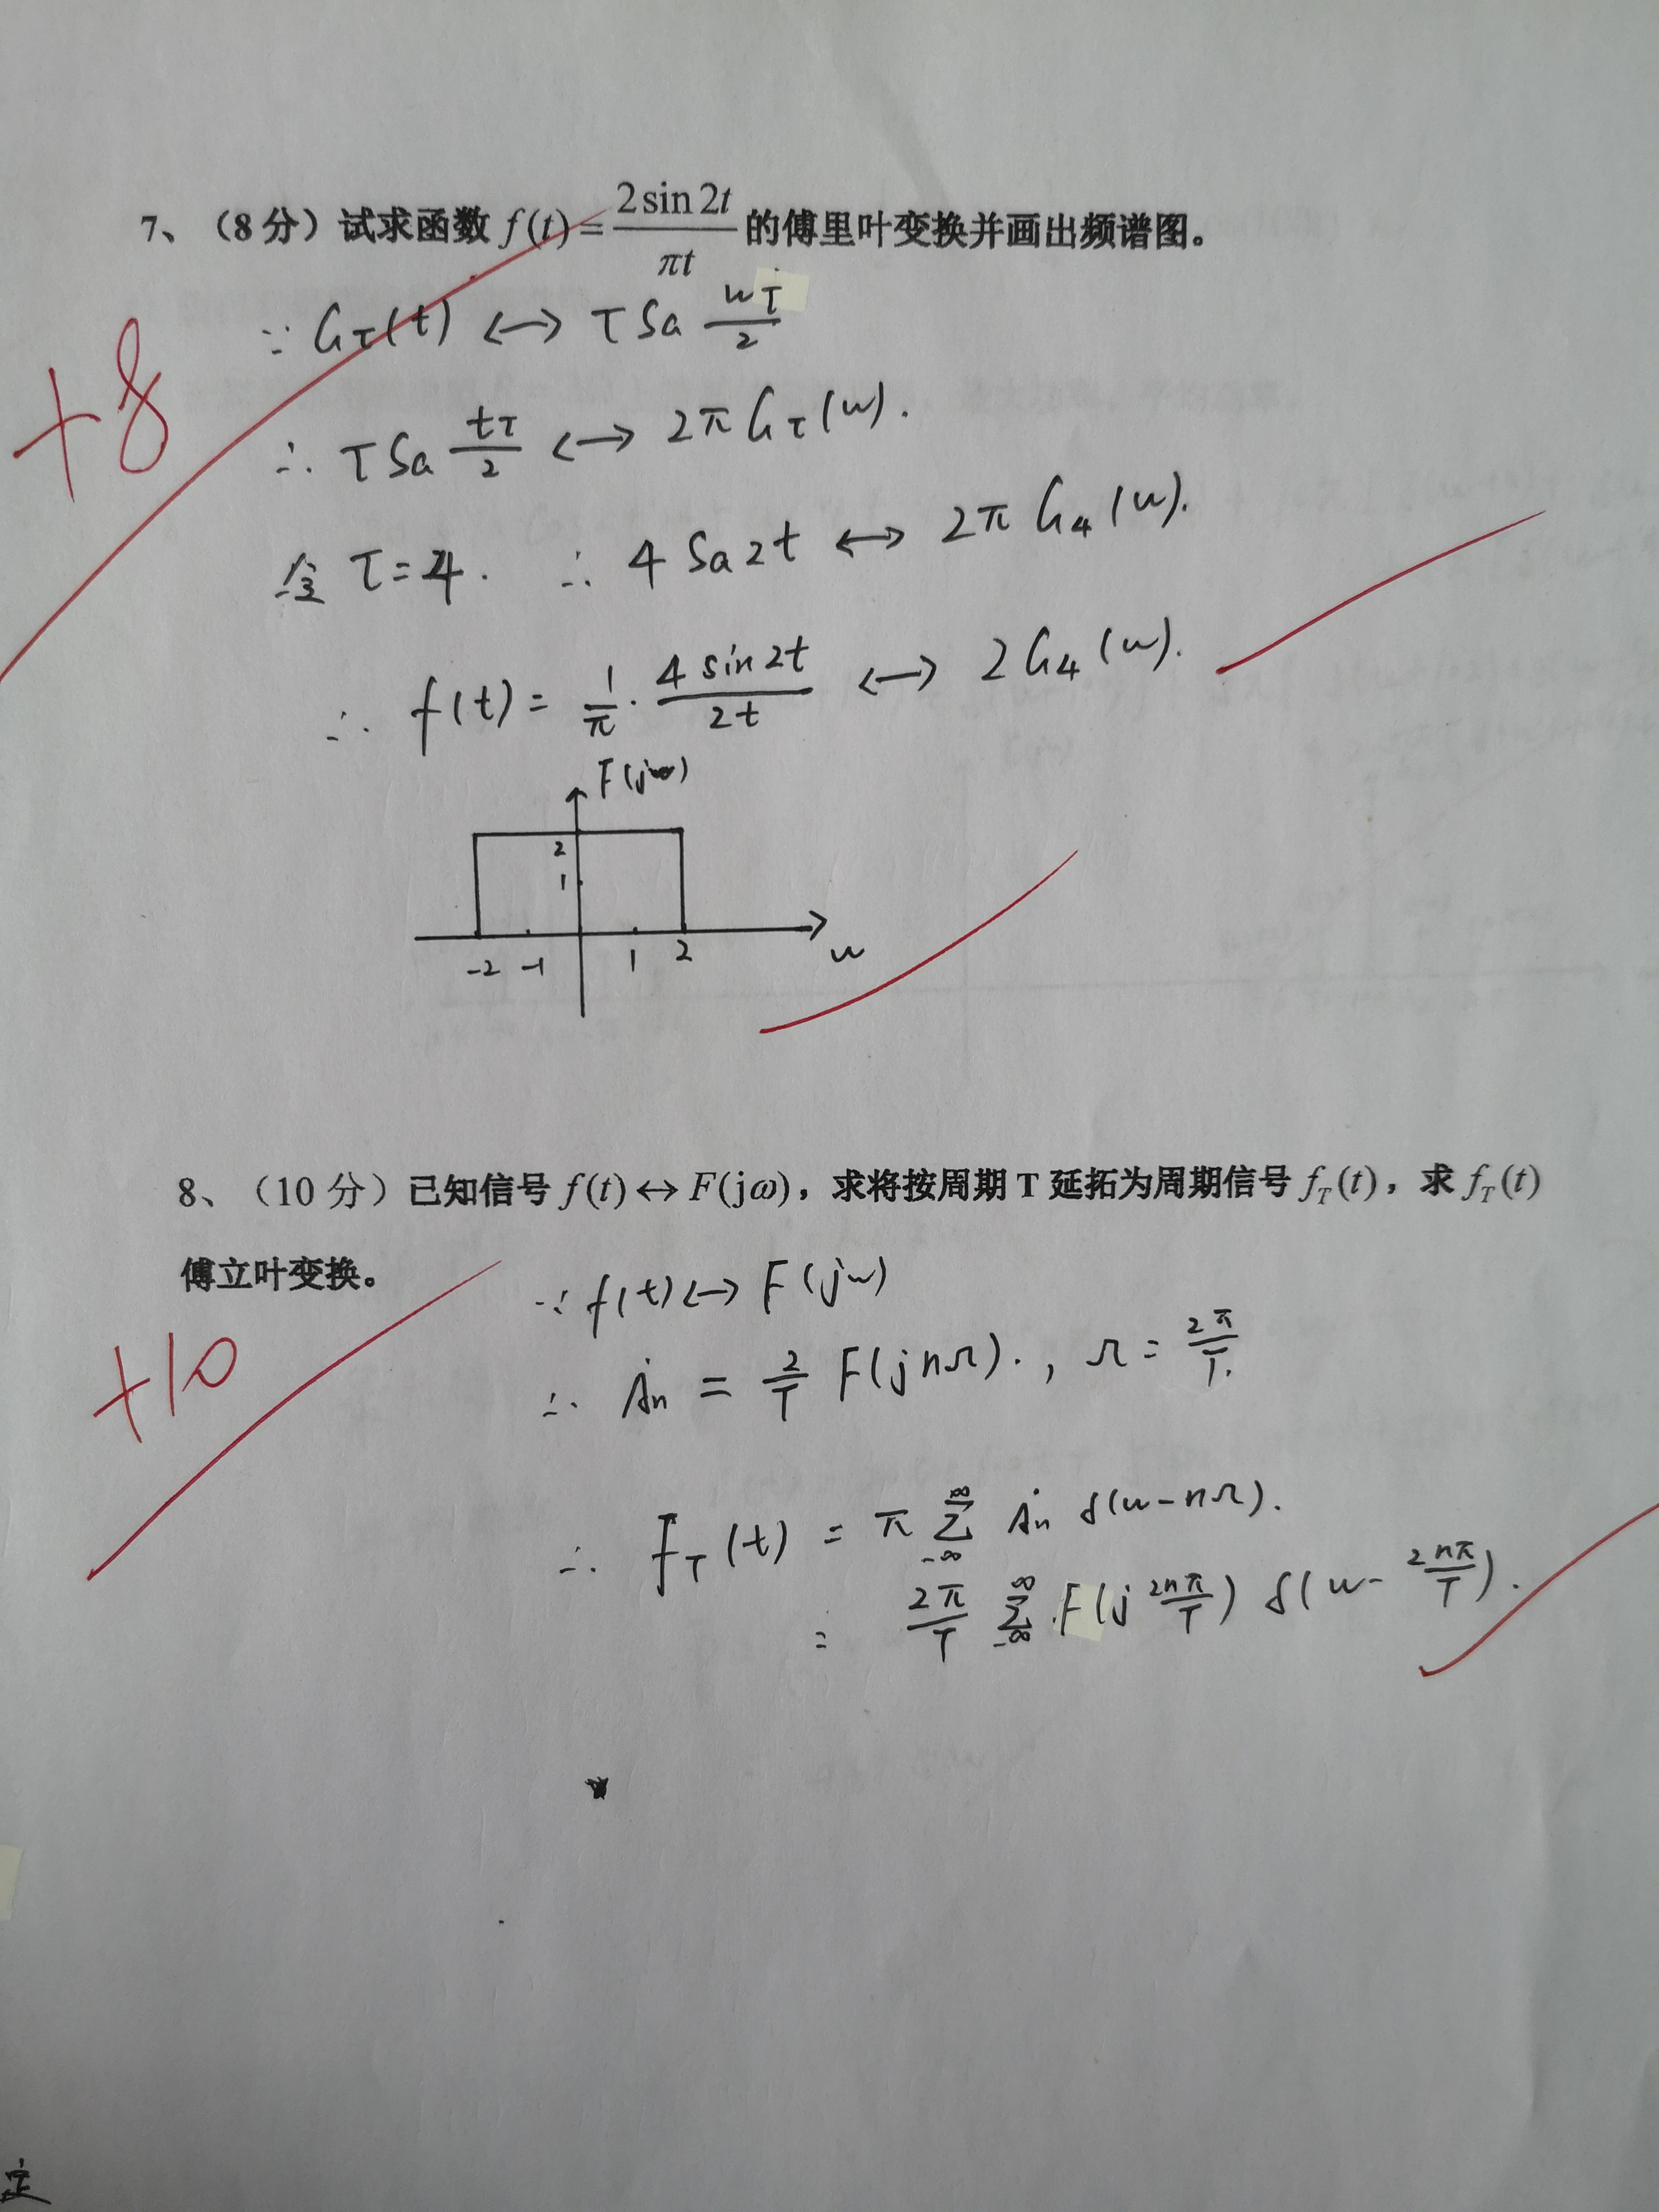 7、（8分）试求函数 f(t) = 2sin2t/πt 的傅里叶变换并画出频谱图。
∵ Gτ(t) ↔ τ Sa wτ/2
+8
∴ τ Sa tτ/2 ↔ 2π Gτ(w).
令 τ=4. ∴ 4 Sa 2t ↔ 2π G4(w).
∴ f(t) = 1/π · 4 sin 2t/2t ↔ 2 G4(w).
F(jw)
2
1
-2 -1 1 2 w
8、（10分）已知信号 f(t)↔F(jω)，求将按周期 T 延拓为周期信号 fT(t)，求 fT(t)
傅立叶变换。
∵ f(t) ↔ F(jw)
+10
∴ Ȧn = 2/T F(jnΩ). , Ω = 2π/T.
∴ fT(t) = π ∞Σ-∞ Ȧn δ(w-nΩ).
= 2π/T ∞Σ-∞ F(j 2nπ/T) δ(w- 2nπ/T).
定